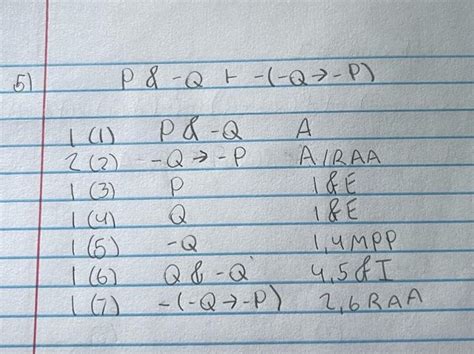 5) P & -Q ⊢ -(-Q → -P)
1 (1) P & -Q A
2 (2) -Q → -P A/RAA
1 (3) P 1 &E
1 (4) Q 1 &E
1 (5) -Q 1,4 MPP
1 (6) Q & -Q 4,5 &I
1 (7) -(-Q → -P) 2,6 RAA